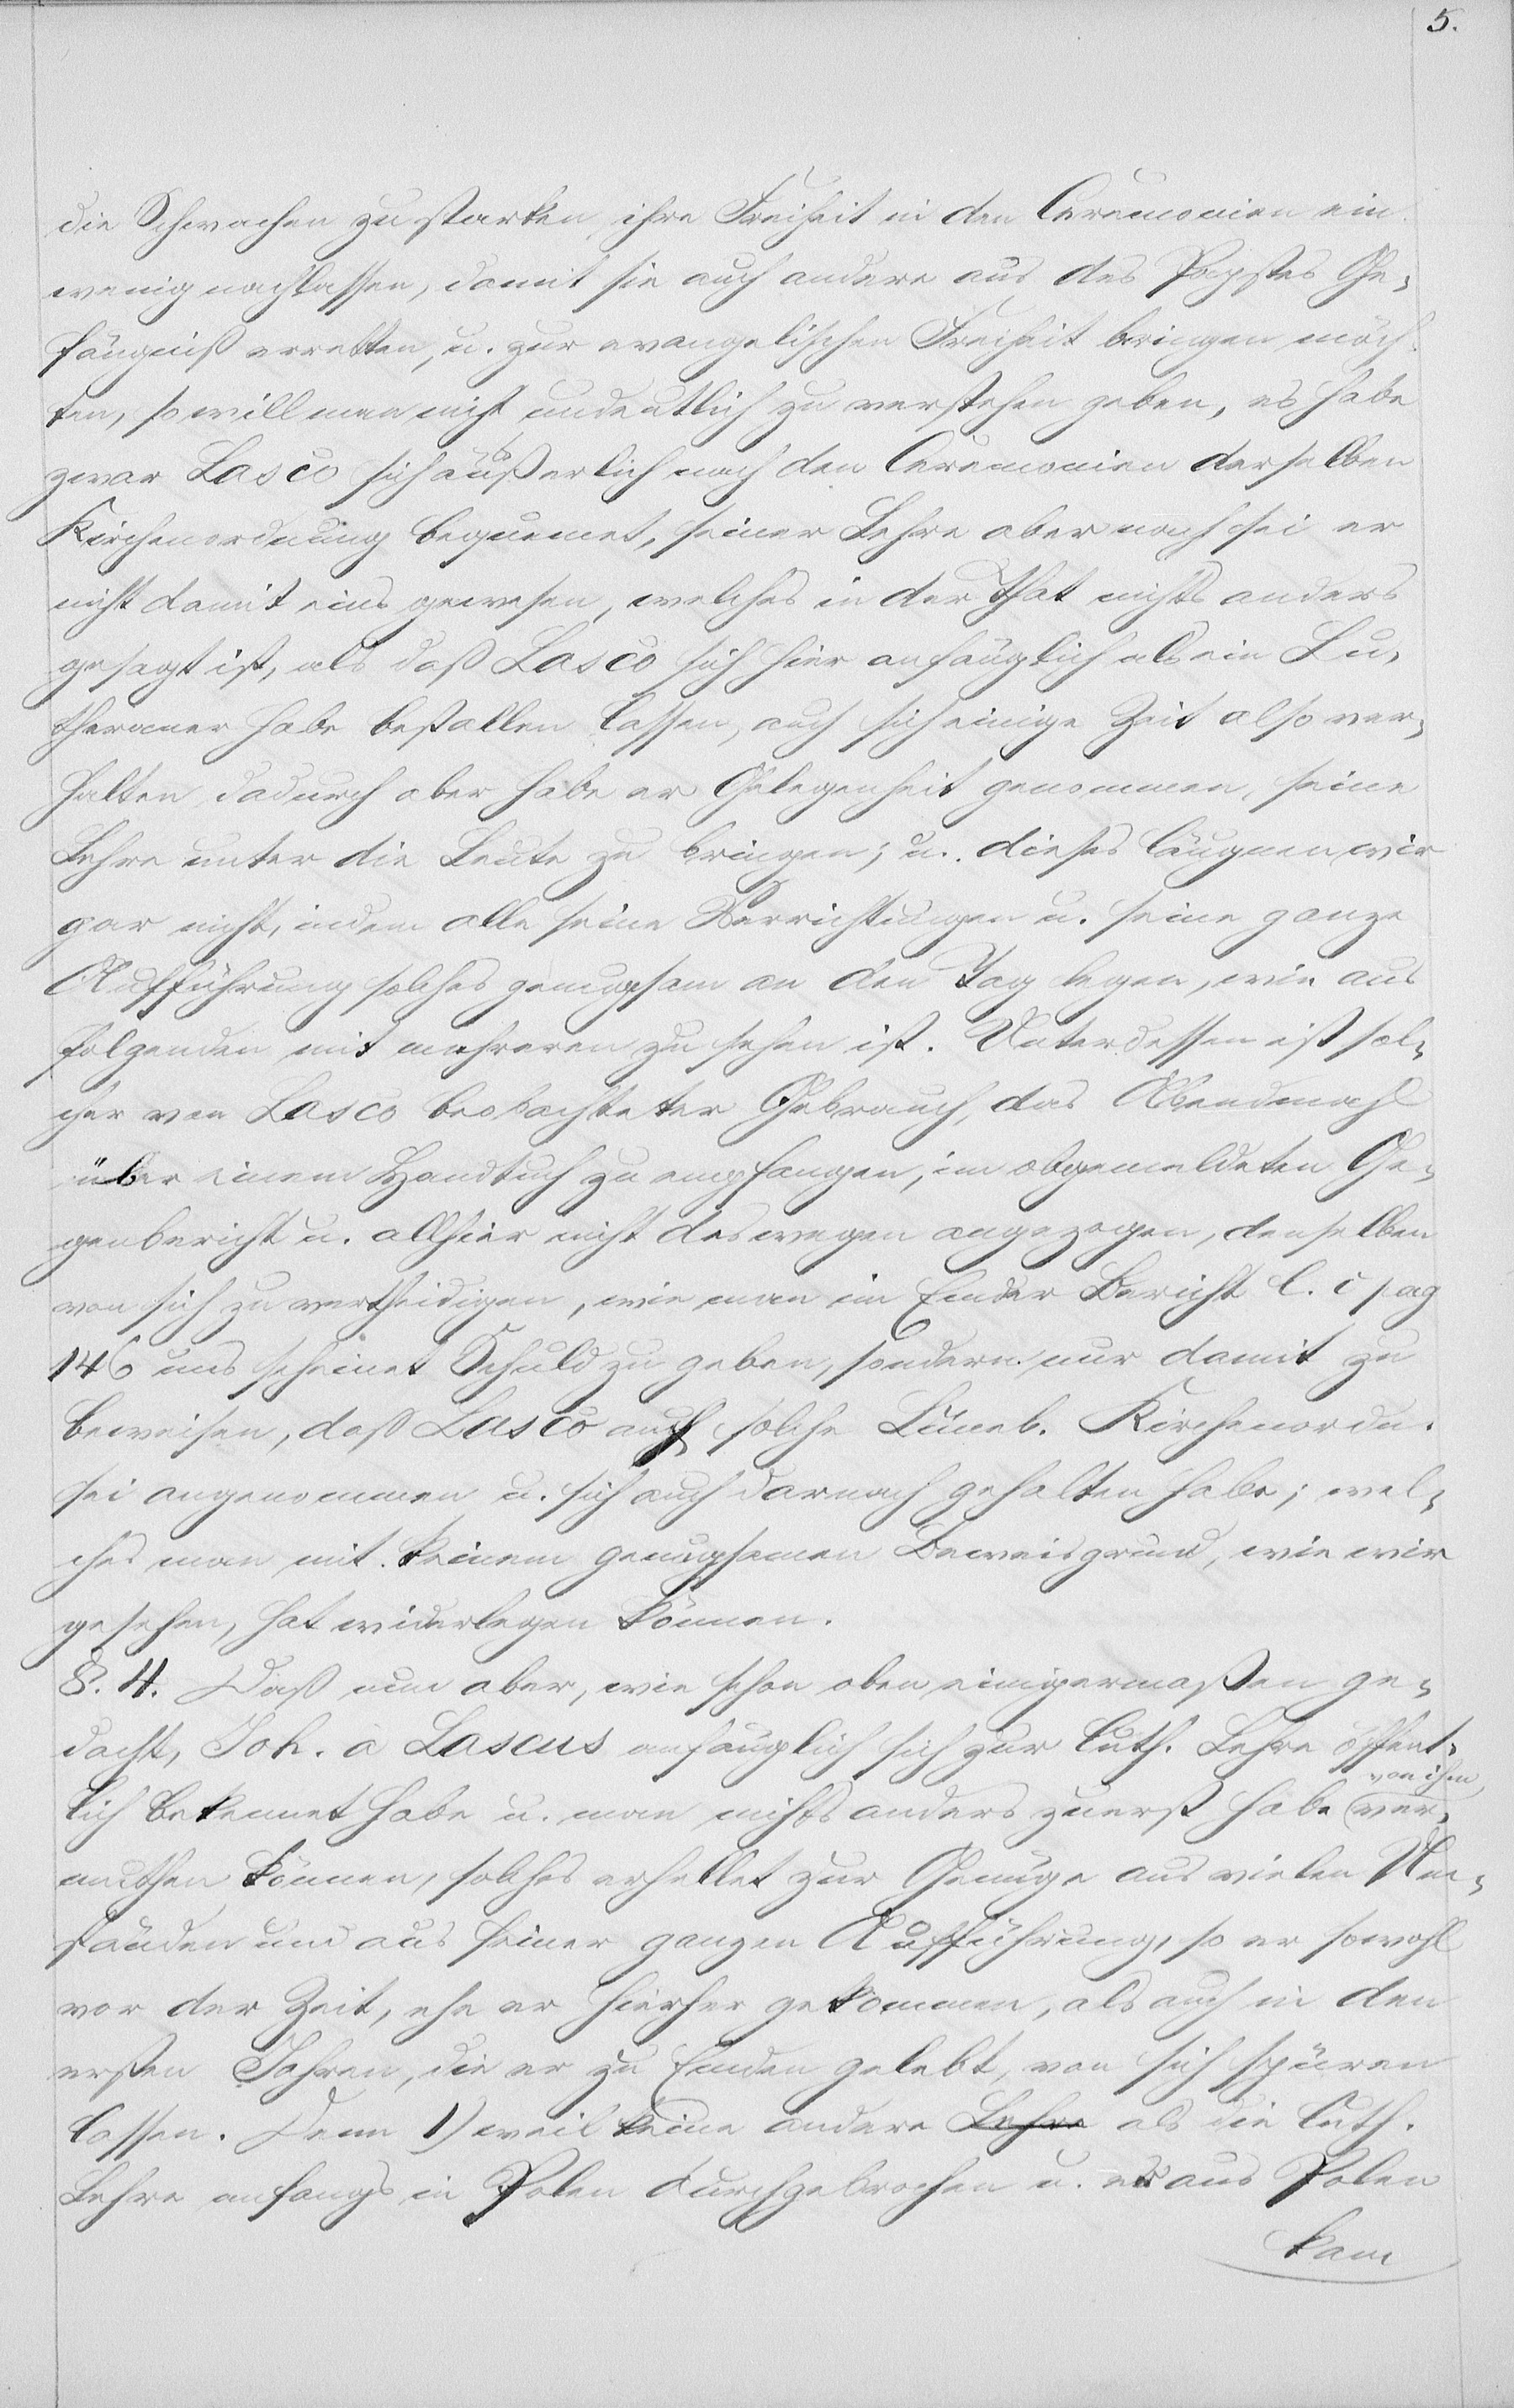 5.
die Schwachen zu starken, ihre Freiheit in den Ceremonien ein
wenig nachlassen, damit sie auch andere aus des Papstes Ge-
fängniß erretten, u. zur evangelischen Freiheit bringen möch-
ten, so will man nicht undeutlich zu verstehen geben, es habe
zwar Lasco sich äußerlich nach den Ceremonien derselben
Kirchenordnung bequemet, seiner Lehre aber nach sei er
nicht damit eins gewesen, welches in der That nichts anders
gesagt ist, als daß Lasco sich hier anfänglich als ein Lu-
theraner habe bestallen lassen, auch sich einige Zeit also ver-
halten, dadurch aber habe er Gelegenheit genommen, seine
Lehre unter die Leute zu bringen; u. dieses läugnen wir
gar nicht, indem alle seine Verrichtungen u. seine ganze
Aufführung solches genugsam an den Tag legen, wie aus
folgenden mit mehreren zu sehen ist. Unterdessen ist sol-
cher von Lasco beobachteter Gebrauch, das Abendmahl
über einem Handtuch zu empfangen, im obgemeldeten Ge-
genbericht u. allhier nicht deswegen angezogen, denselben
von sich zu vertheidigen, wie man im Emder Bericht l. c pag
146 uns scheinet Schuld zu geben, sondern nur damit zu
beweisen, daß Lasco auf solche Lüneb. Kirchenordn.
sei angenommen u. sich auch darnach gehalten habe; wel-
ches man mit keinem genugsamen Beweisgrund, wie wir
gesehen, hat widerlegen können.
§. 4. Daß nun aber, wie schon oben einigermaßen ge-
dacht, Joh. à Lascus anfänglich sich zur luth. Lehre öffent-
von ihm
lich bekennet habe u. man nichts anders zuerst habe ver-
muthen können, solches erhellet zur Genüge aus vielen Um-
ständen und aus seiner ganzen Aufführung, so er sowohl
vor der Zeit, ehe er hierher gekommen, als auch in den
ersten Jahren, die er zu Emden gelebt, von sich spüren
lassen. Denn 1) weil keine andere Lehre als die luth.
Lehre anfangs in Polen durchgebrochen u. er aus Polen
kam